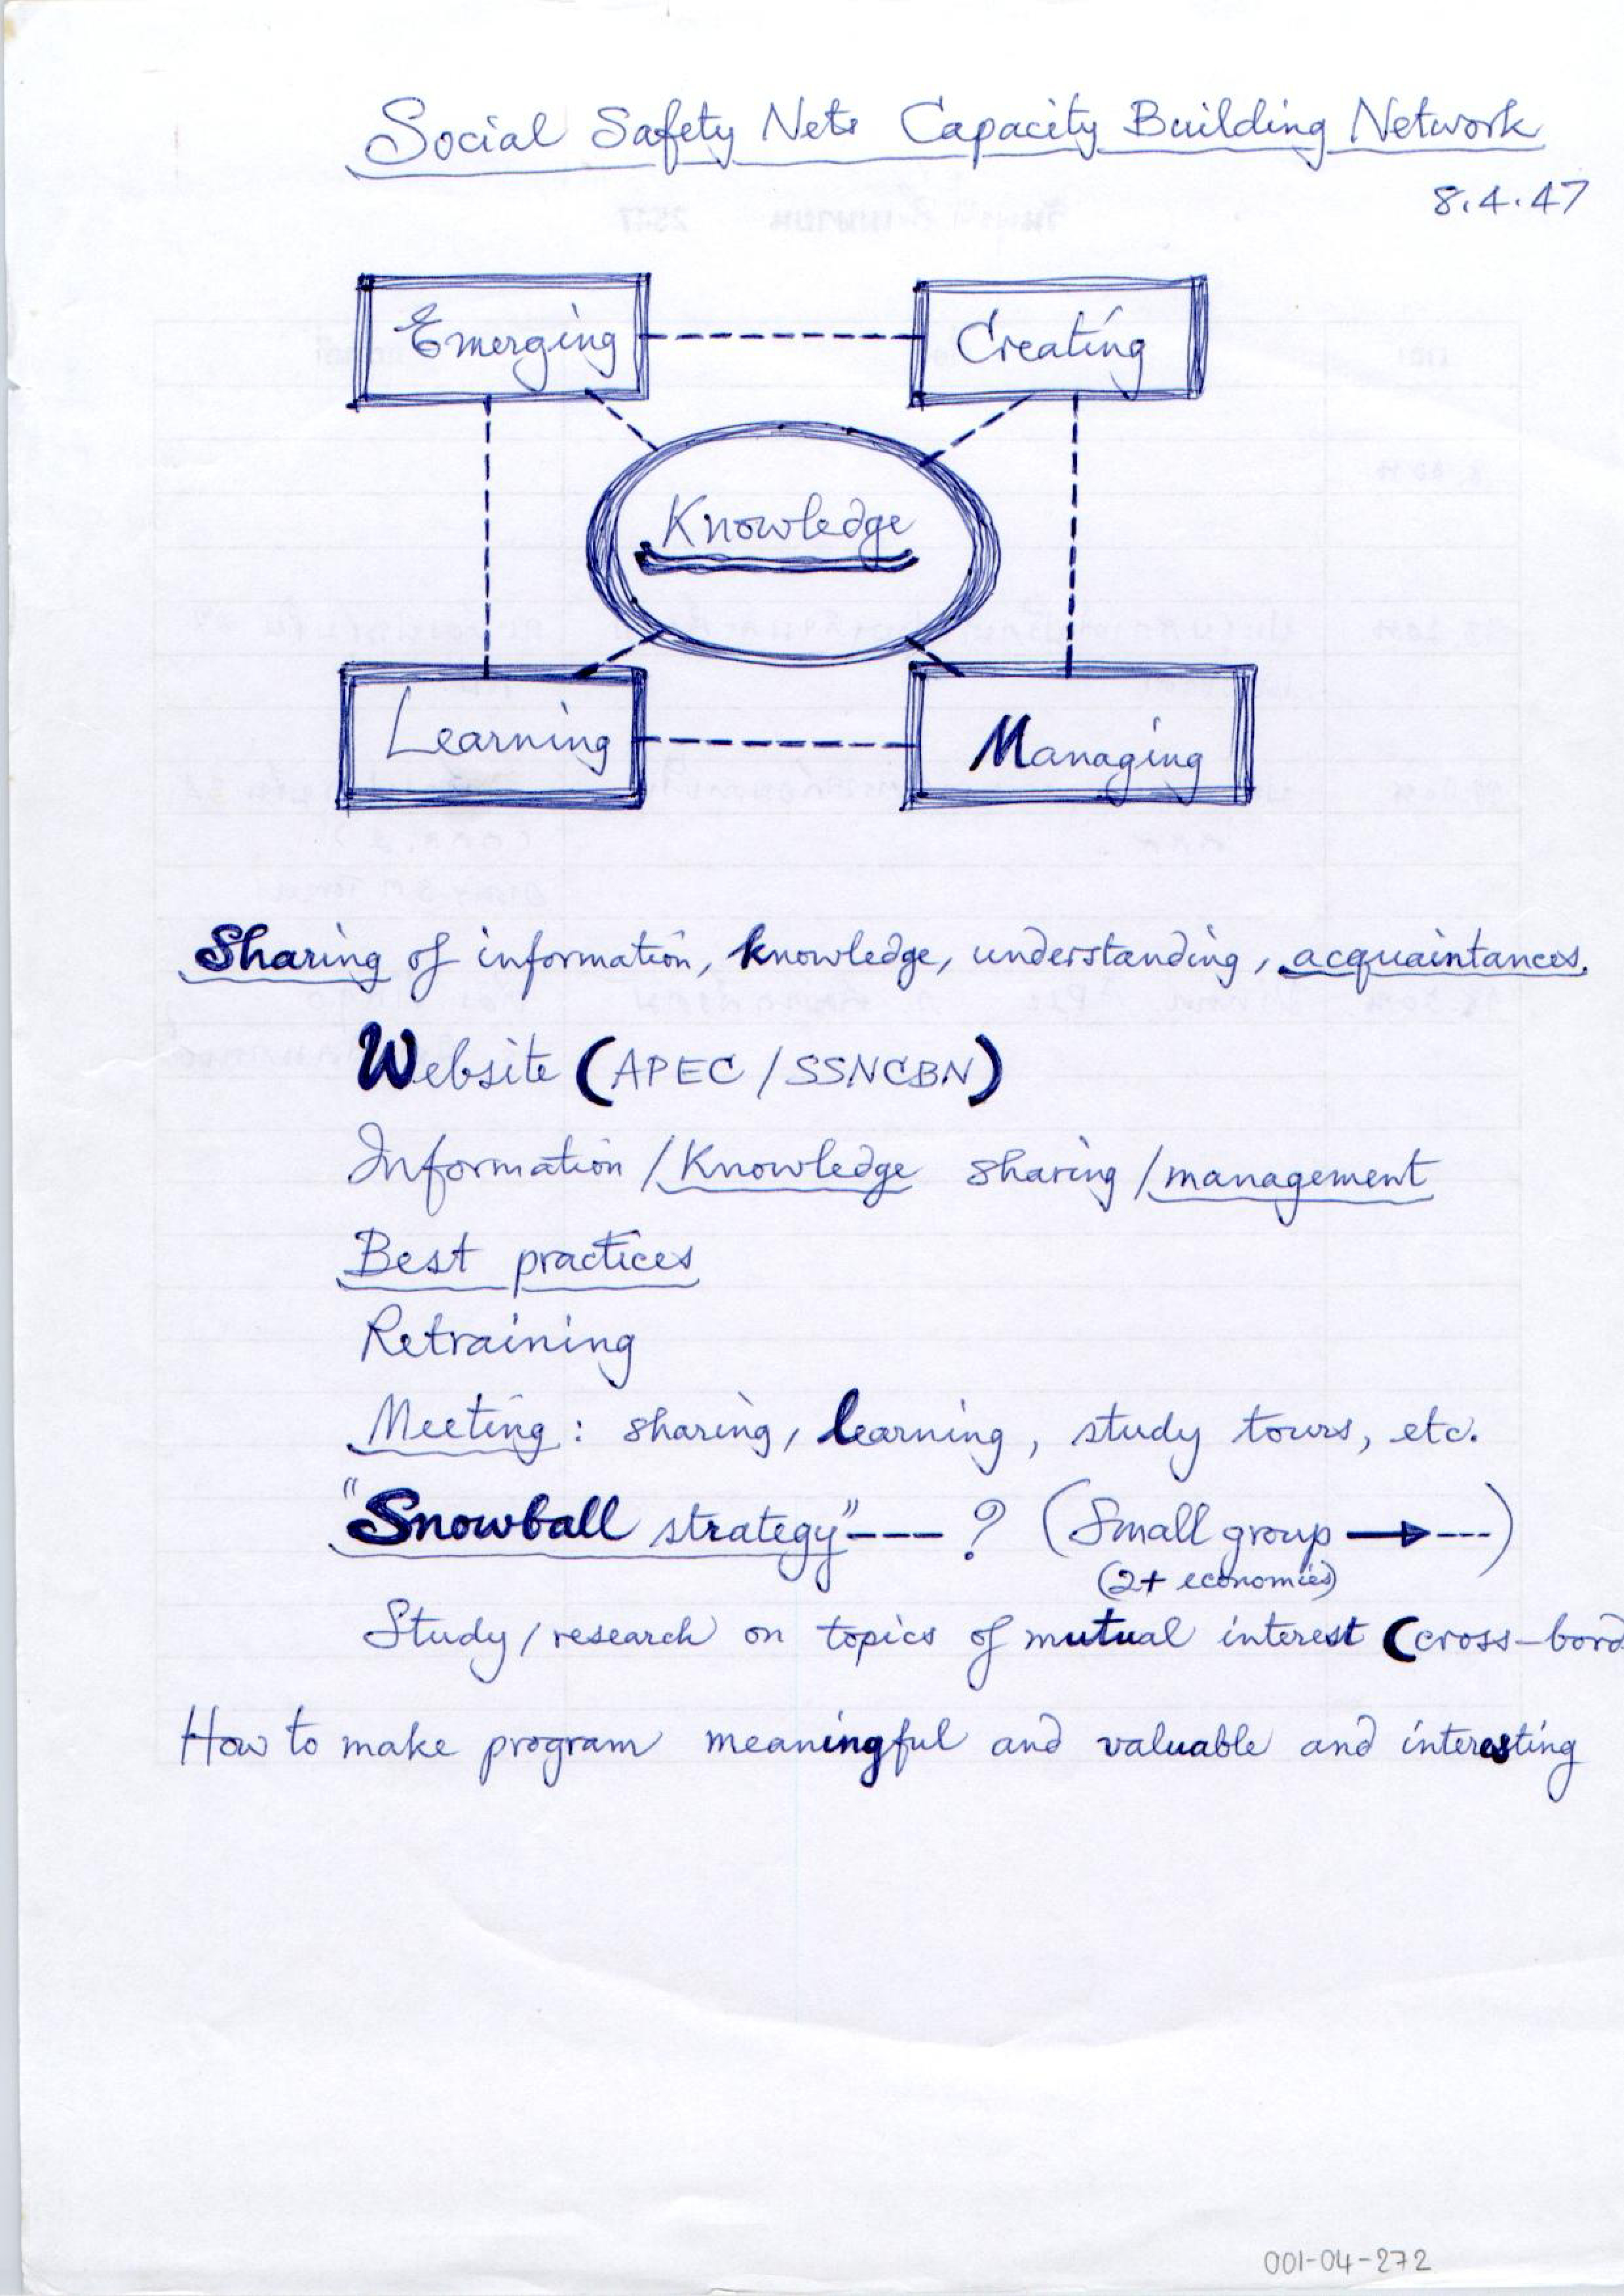 Social Safety Nets Capacity Building Network
8.4.47
Emerging
Creating
Knowledge
Learning
Managing
Sharing of information, knowledge, understanding, acquaintances.
Website (APEC / SSNCBN)
Information / Knowledge sharing / management
Best practices
Retraining
Meeting : sharing, learning, study tours, etc.
"Snowball strategy" --- ? (Small group → ---)
(2+ economies)
Study / research on topics of mutual interest (cross-bord
How to make program meaningful and valuable and interesting
001-04-272